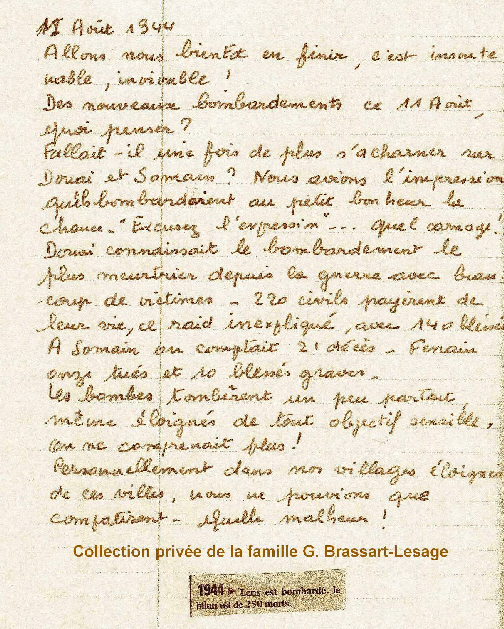 11 Août 1944
Allons nous bientôt en finir, c'est insoute
nable, invivable !
Des nouveaux bombardements ce 11 Août,
quoi penser ?
Fallait-il une fois de plus s'acharner sur
Douai et Somain ? Nous avions l'impression
qu'ils bombardaient au petit bonheur la
chance. "Excusez l'expression"... quel carnage.
Douai connaissait le bombardement le
plus meurtrier depuis la guerre avec beau
coup de victimes - 220 civils payèrent de
leur vie, ce raid inexpliqué, avec 140 blessés
A Somain on comptait 21 décès - Fenain
onze tués et 10 blessés graves -
Les bombes tombèrent un peu partout,
même éloignés de tout objectif sensible,
on ne comprenait plus !
Personnellement dans nos villages éloignés
de ces villes, nous ne pouvions que
compatirent - quelle malheur !
Collection privée de la famille G. Brassart-Lesage
1944 Lens est bombardé, le
bilan est de 250 morts.